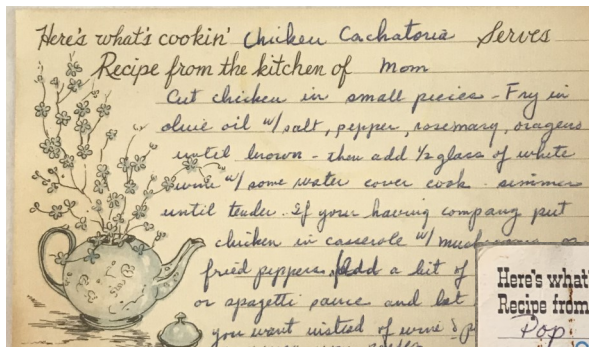 Here's what's cookin' Chicken Cachatoria Serves
Recipe from the kitchen of Mom
Cut chicken in small piecies - Fry in
olive oil w/ salt, pepper, rosemary, oragens
until brown - then add 1/2 glass of white
wine w/ some water cover cook - simmer
until tender. If your having company put
chicken in casserole w/
fried peppers. Add a bit of
or spagetti sauce and let
you want instied of wine
Here's what
Recipe from
Pop